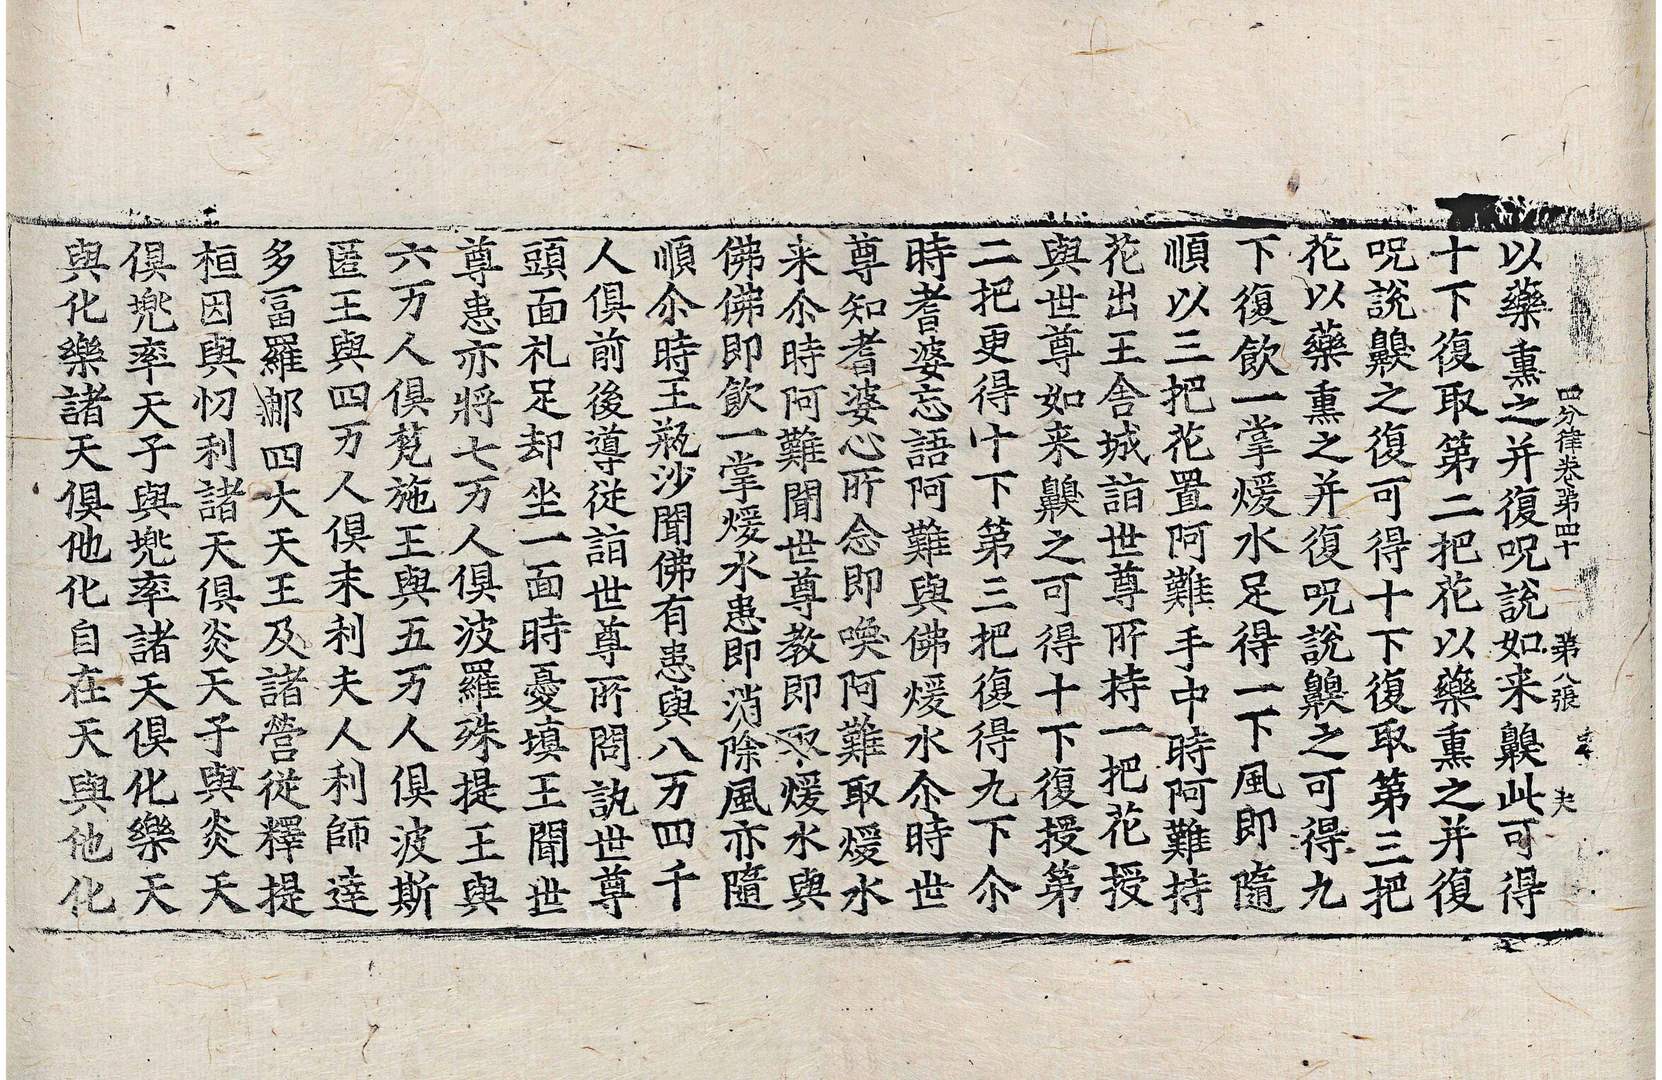 四分律卷第四十　第八張　夫
以藥熏之并復呪說如来齅此可得
十下復取第二把花以藥熏之并復
呪說齅之復可得十下復取第三把
花以藥熏之并復呪說齅之可得九
下復飲一掌煖水足得一下風即隨
順以三把花置阿難手中時阿難持
花出王舍城詣世尊所持一把花授
與世尊如来齅之可得十下復授第
二把更得十下第三把復得九下尒
時耆婆忘語阿難與佛煖水尒時世
尊知耆婆心所念即喚阿難取煖水
来尒時阿難聞世尊教即取煖水與
佛佛即飲一掌煖水患即消除風亦隨
順尒時王瓶沙聞佛有患與八万四千
人俱前後導從詣世尊所問訊世尊
頭面礼足却坐一面時憂填王聞世
尊患亦將七万人俱波羅殊提王與
六万人俱梵施王與五万人俱波斯
匿王與四万人俱末利夫人利師達
多富羅那四大天王及諸營從釋提
桓因與忉利諸天俱炎天子與炎天
俱兠率天子與兠率諸天俱化樂天
與化樂諸天俱他化自在天與他化